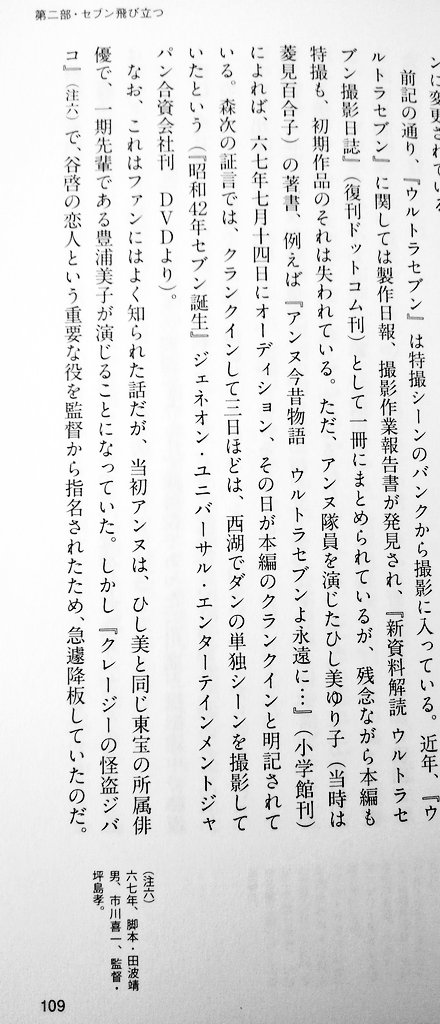 第二部・セブン飛び立つ
ンに変更されている
前記の通り、『ウルトラセブン』は特撮シーンのバンクから撮影に入っている。近年、『ウ
ルトラセブン』に関しては製作日報、撮影作業報告書が発見され、『新資料解読 ウルトラセ
ブン撮影日誌』（復刊ドットコム刊）として一冊にまとめられているが、残念ながら本編も
特撮も、初期作品のそれは失われている。ただ、アンヌ隊員を演じたひし美ゆり子（当時は
菱見百合子）の著書、例えば『アンヌ今昔物語 ウルトラセブンよ永遠に…』（小学館刊）
によれば、六七年七月十四日にオーディション、その日が本編のクランクインと明記されて
いる。森次の証言では、クランクインして三日ほどは、西湖でダンの単独シーンを撮影して
いたという（『昭和42年セブン誕生』ジェネオン・ユニバーサル・エンターテインメントジャ
パン合資会社刊 DVDより）。
なお、これはファンにはよく知られた話だが、当初アンヌは、ひし美と同じ東宝の所属俳
優で、一期先輩である豊浦美子が演じることになっていた。しかし『クレージーの怪盗ジバ
コ』（注六）で、谷啓の恋人という重要な役を監督から指名されたため、急遽降板していたのだ。
（注六）
六七年、脚本・田波靖
男、市川喜一、監督・
坪島孝。
109